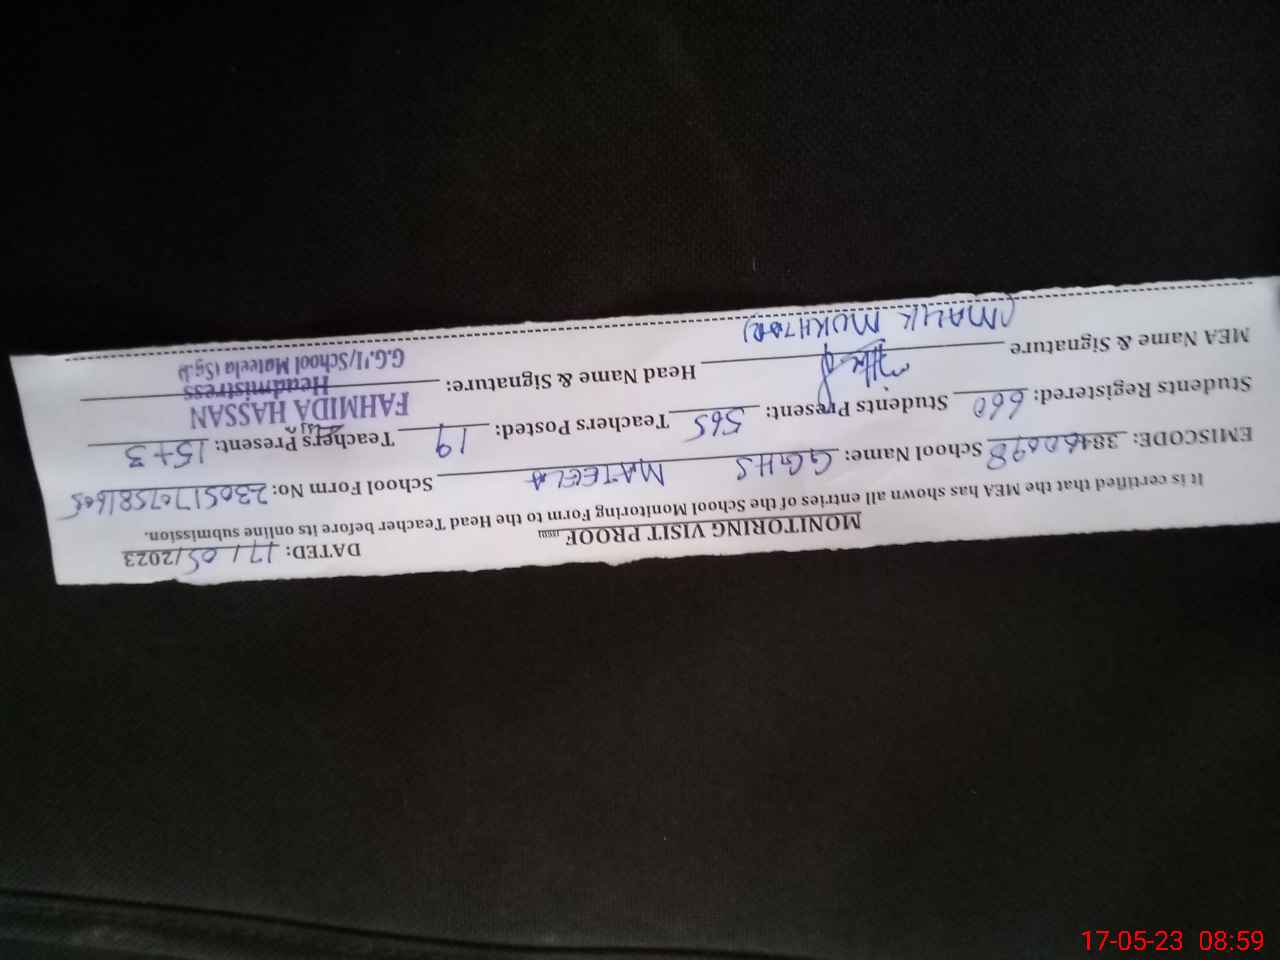 MONITORING VISIT PROOF
DATED: 17/05/2023
It is certified that the MEA has shown all entries of the School Monitoring Form to the Head Teacher before its online submission.
EMISCODE: 38460098 School Name: GGHS MATEELA School Form No: 23051707581605
Students Registered: 660 Students Present: 565 Teachers Posted: 19 Teachers Present: 15+3
MEA Name & Signature Head Name & Signature:
(MALIK MUKHTAR)
FAHMIDA HASSAN
Headmistress
G.G.H/School Mateela (Sg.)
17-05-23 08:59